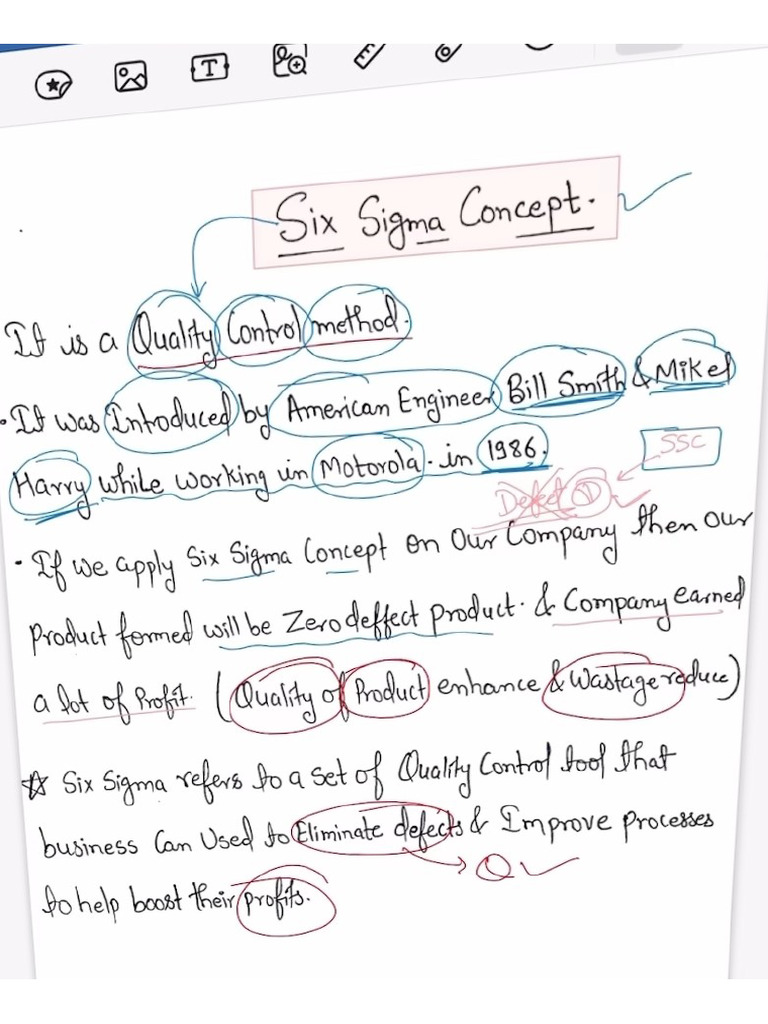 T
Six Sigma Concept.
It is a Quality Control method.
• It was Introduced by American Engineer Bill Smith & Mikel
Harry while working in Motorola. in 1986.
SSC
Defect
• If we apply Six Sigma Concept on Our Company then Our
Product formed will be Zero deffect product. & Company earned
a lot of Profit. (Quality of Product enhance & Wastage reduce)
☆ Six Sigma refers to a set of Quality Control tool that
business Can Used to Eliminate defects & Improve processes
to help boost their profits.